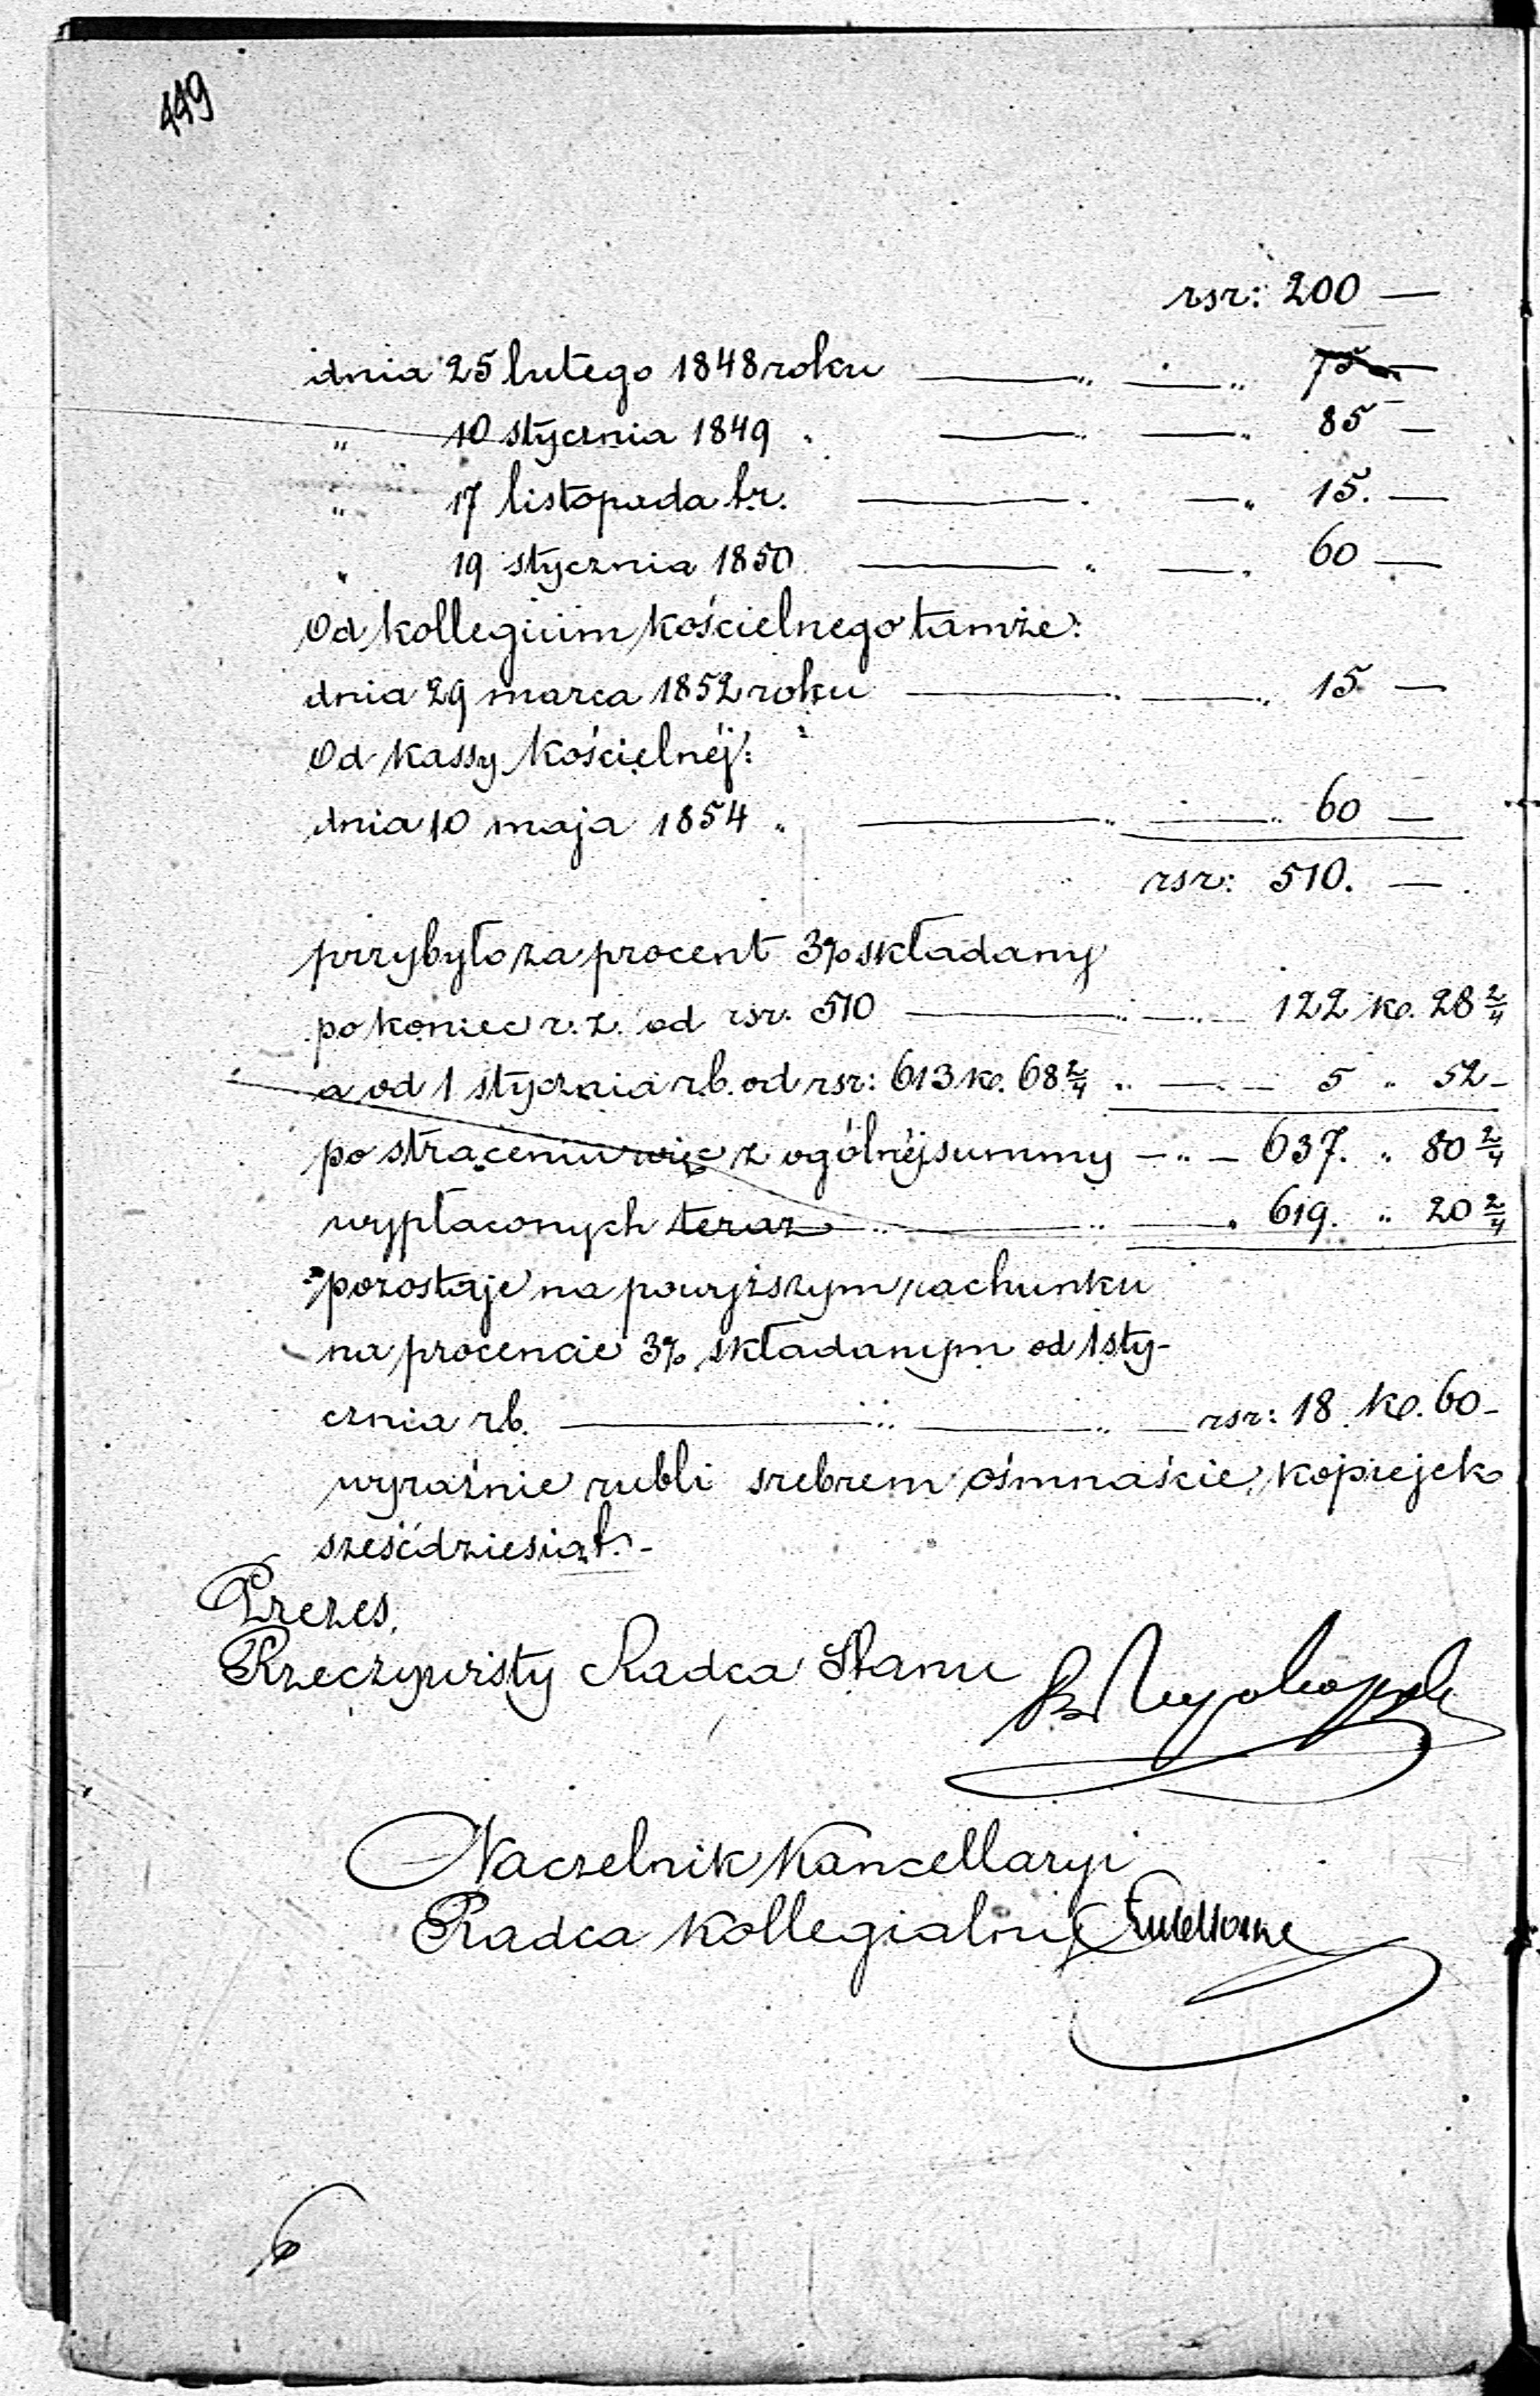 449
rsr: 200 —
dnia 25 lutego 1848 roku — „ — „ 75 —
„ 10 stycznia 1849 „ — „ — „ 85 —
„ 17 listopada t.r. — „ — „ 15. —
„ 19 stycznia 1850 — „ — „ 60 —
Od kollegium kościelnego tamże:
dnia 29 marca 1852 roku — „ — „ 15 —
Od kassy kościelnéj:
dnia 10 maja 1854 „ — „ — „ 60 —
rsr: 510. —
przybyło za procent 3% składany
po koniec r. z. od rsr. 510 — „ — „ — 122 k. 28 2/4
a od 1 stycznia r.b. od rsr: 613 k. 68 2/4 „ — „ — 5 „ 52 —
po strąceniu więc z ogólnéj summy — „ — 637. „ 80 2/4
wypłaconych teraz — „ — „ — „ 619. „ 20 2/4
pozostaje na powyższym rachunku
na procencie 3% składanym od 1 sty-
cznia r.b. — „ — „ — rsr: 18. k. 60 —
wyraźnie rubli srebrem ośmnaście, kopiejek
sześćdziesiąt. —
Prezes,
Rzeczywisty Radca Stanu
Naczelnik Kancellaryi
Radca Kollegialny